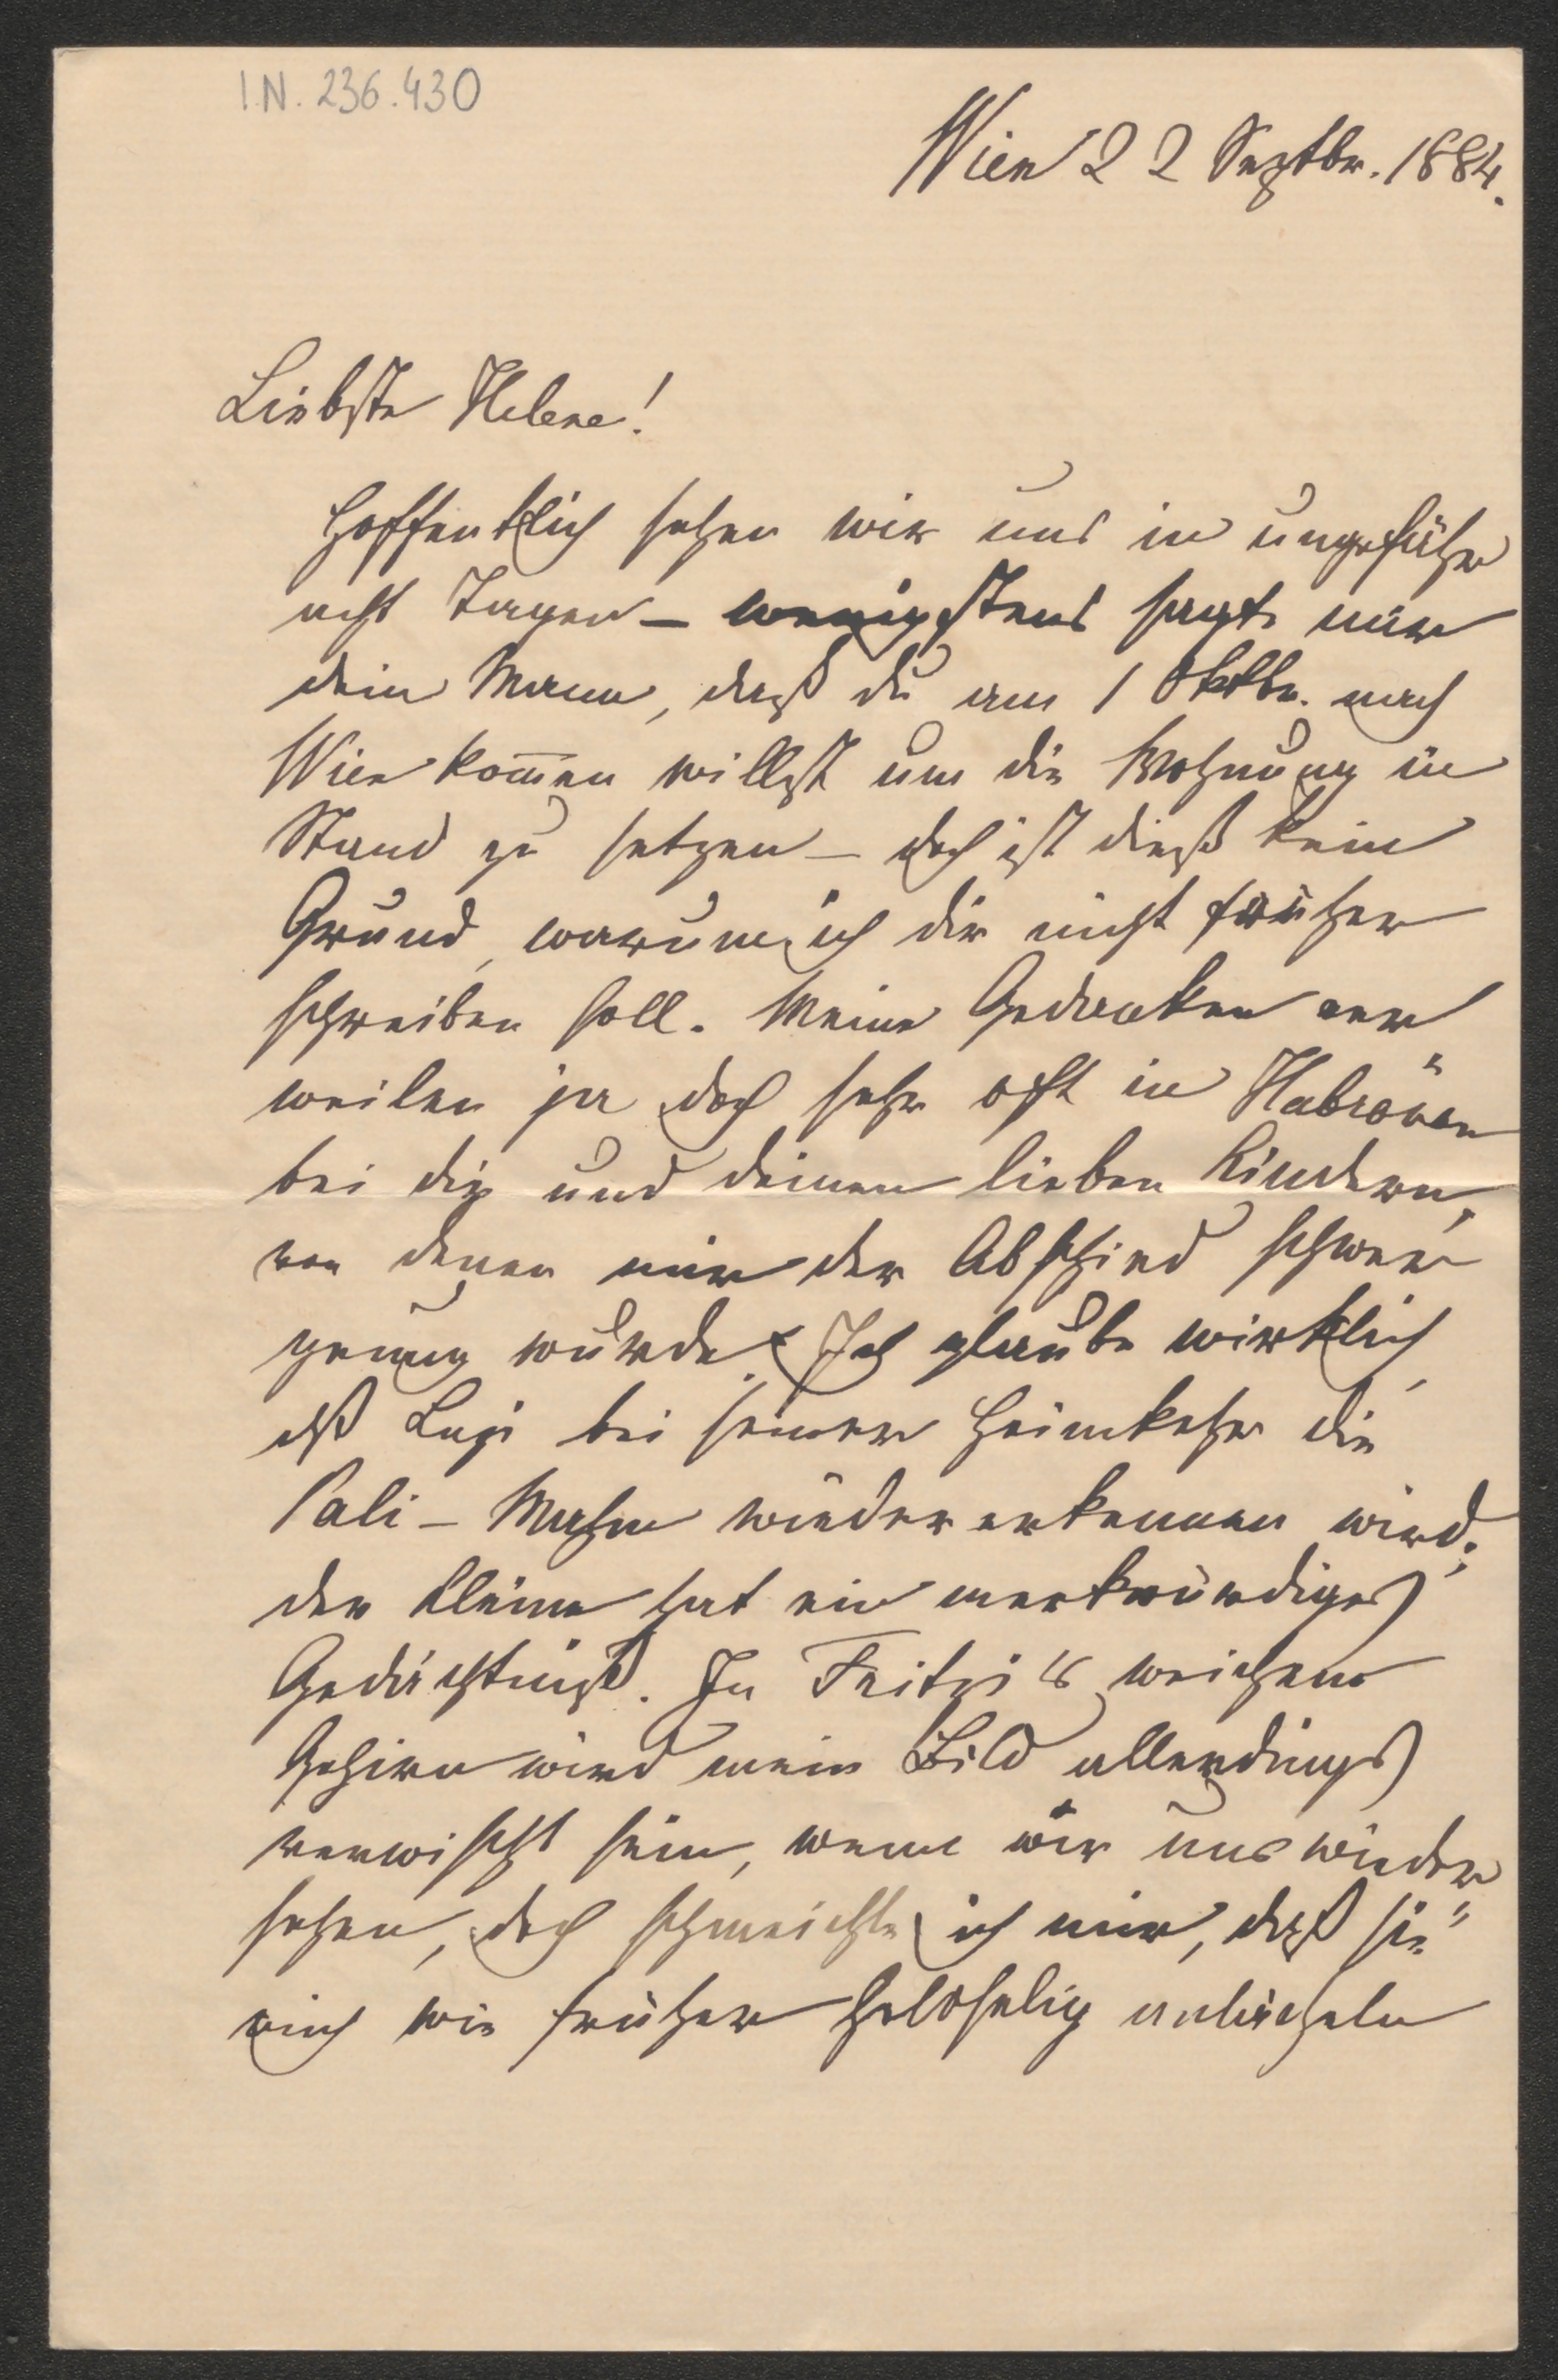 I.N. 236.430
Wien 22 Septbr. 1884.
Liebste Helene!
Hoffentlich sehen wir uns in ungefähr
acht Tagen – wenigstens sagte mir
dein Mann, daß du am 1 Oktbr. nach
Wien kom̅en willst um die Wohnung in
Stand zu setzen – doch ist dieß kein
Grund, warum ich dir nicht früher
schreiben soll. Meine Gedanken ver
weilen ja doch sehr oft in Habrovan
bei dir und deinen lieben Kindern,
von denen mir der Abschied schwer
genug wurde. Ich glaube wirklich,
dß bei seiner Heimkehr die
Pali – Muhme wiedererkennen wird;
der Kleine hat ein merkwürdiges
Gedächtniß. In Fritzi's weichem
Gehirn wird mein Bild allerdings
verwischt sein, wenn wir uns wieder
sehen, doch schmeichle ich mir, daß sie
mich wie früher holdselig anlächeln